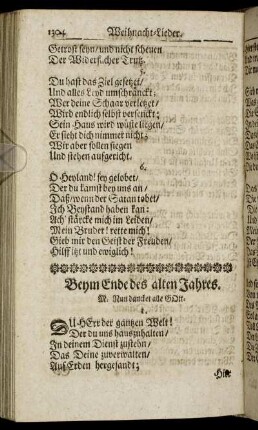 1304 Weihnacht-Lieder.
Getrost seyn/ und nicht scheuen
Der Widersacher Trutz.
5.
Du hast das Ziel gesetzet/
Und alles Leyd umschränckt;
Wer deine Schaar verletzet/
Wird endlich selbst versenckt;
Sein Haus wird wüste liegen/
Er sieht dich nimmer nicht;
Wir aber sollen siegen
Und stehen aufgericht.
6.
O Heyland! sey gelobet/
Der du kamst bey uns an/
Daß/ wenn der Satan tobet/
Ich Beystand haben kan:
Ach! stärcke mich im Leiden/
Mein Bruder! rette mich!
Gieb mir den Geist der Freuden/
Hilff itzt und ewiglich!
Beym Ende des alten Jahres.
M. Nun dancket alle GOtt.
1.
DU HErr der gantzen Welt!
Der du uns hauszuhalten/
In deinem Dienst zustehn/
Das Deine zuverwalten/
Auf Erden hergesandt;